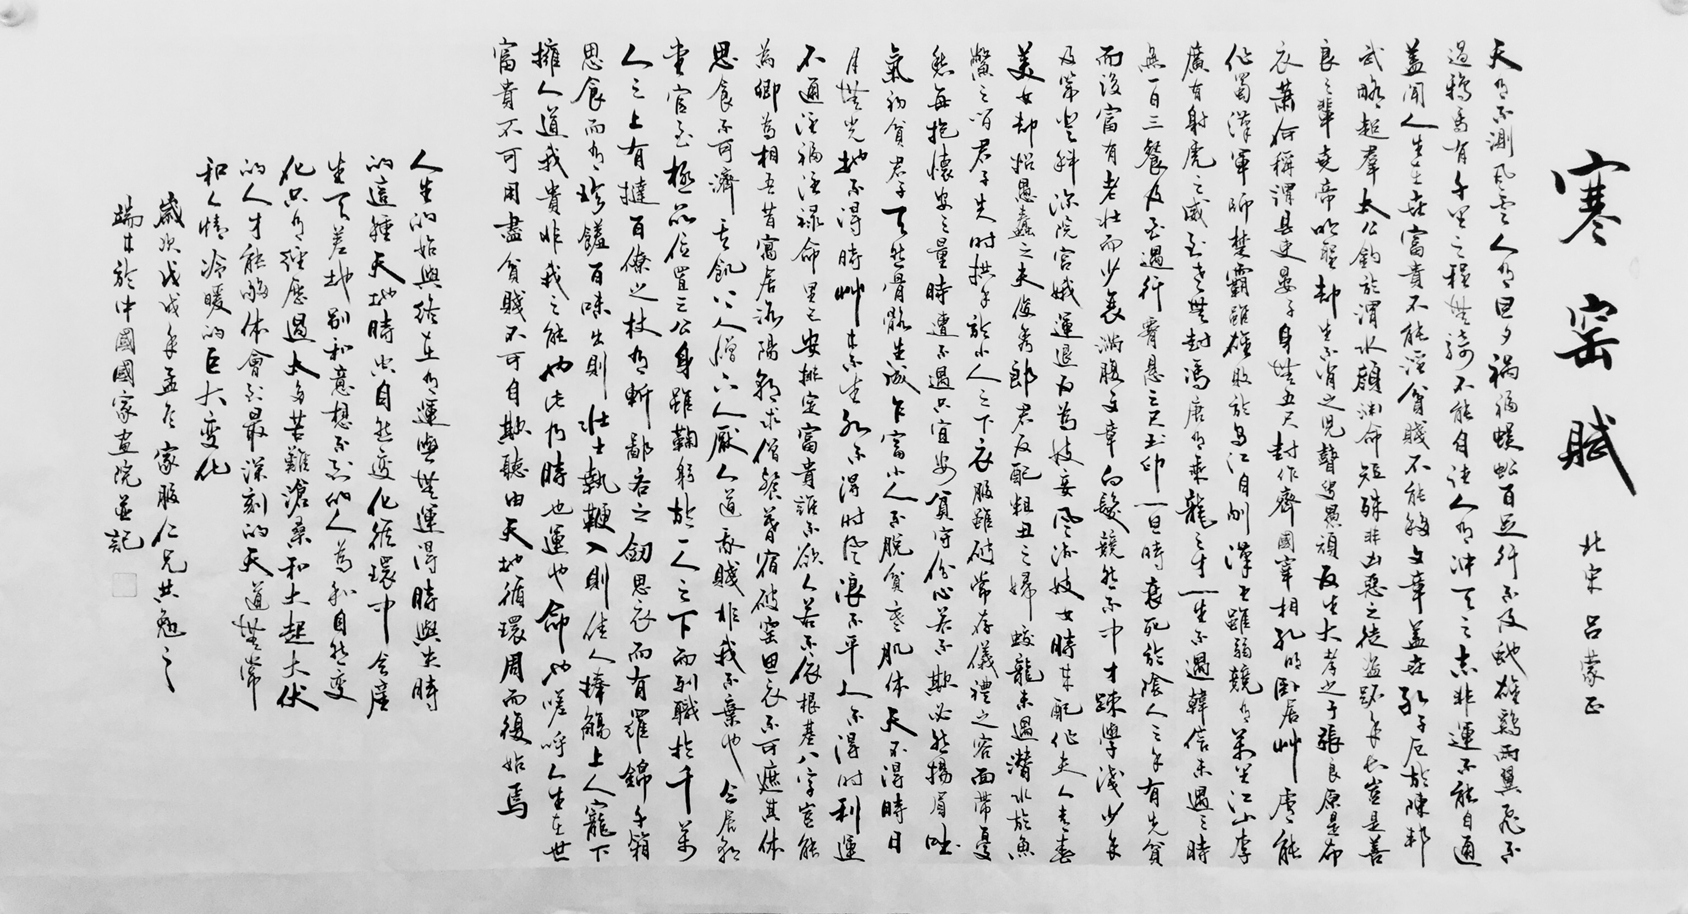 寒窑賦
北宋 呂蒙正
天有不測風雲人有旦夕禍福蜈蚣百足行不及蛇雄鷄兩翼飛不
過鴉馬有千里之程無騎不能自往人有沖天之志非運不能自通
盖聞人生在世富貴不能淫貧賤不能移文章盖世孔子厄於陳邦
武略超羣太公釣於渭水顔淵命短殊非凶惡之徒盗跖年長豈是善
良之輩堯帝明聖却生不肖之兒瞽叟愚頑反生大孝之子張良原是布
衣蕭何稱謂县吏晏子身無五尺封作齊國宰相孔明卧居艸廬能
作蜀漢軍師楚霸雖雄敗於烏江自刎漢王雖弱競有萬里江山李
廣有射虎之威到老無封馮唐有乘龍之才一生不遇韓信未遇之時
無一日三餐及至遇行腰懸三尺玉印一旦時衰死於陰人之手有先貧
而後富有老壯而少衰滿腹文章白髮競然不中才踈學淺少年
及第登科深院宫娥運退反為妓妾風流妓女時来配作夫人青春
美女却招愚蠢之夫俊秀郎君反配粗丑之婦蛟龍未遇潜水於魚
鱉之间君子失时拱手於小人之下衣服雖破常存儀禮之容面带憂
愁每抱懷安之量時遭不遇只宜安貧守份心若不欺必然揚眉吐
氣初貧君子天然骨骼生成乍富小人不脱貧寒肌体天不得時日
月無光地不得時艸木不生水不得时風浪不平人不得时利運
不通注福注禄命里已安排定富貴誰不欲人若不依根基八字豈能
為卿為相吾昔寓居洛陽朝求僧餐暮宿破窑思衣不可遮其体
思食不可濟其飢上人憎下人厭人道我賤非我不棄也今居朝
堂官至極品位置三公身雖鞠躬於一人之下而列職於千萬
人之上有撻百僚之杖有斬鄙吝之劒思衣而有羅錦千箱
思食而有珍饈百味出則壮士執鞭入則佳人捧觴上人寵下
人擁人道我貴非我之能也此乃時也運也命也嗟呼人生在世
富貴不可用盡貧賤不可自欺聽由天地循環周而復始焉
人生的始與终在於運與無運得時與失時
的這種天地時空自然变化循環中會産
生天差地别和意想不到的人為和自然变
化只有經歷過太多苦難滄桑和大起大伏
的人才能够体會到最深刻的天道無常
和人情冷暖的巨大变化
歲次戊戌年孟冬家服仁兄共勉之
端木於中國國家画院並記